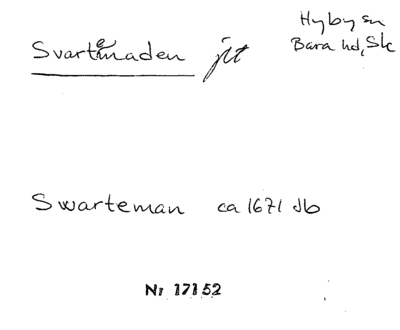 Hyby sn
Svartemaden jit Bara hd, Sk
Swarteman ca 1671 db
Nr 17152